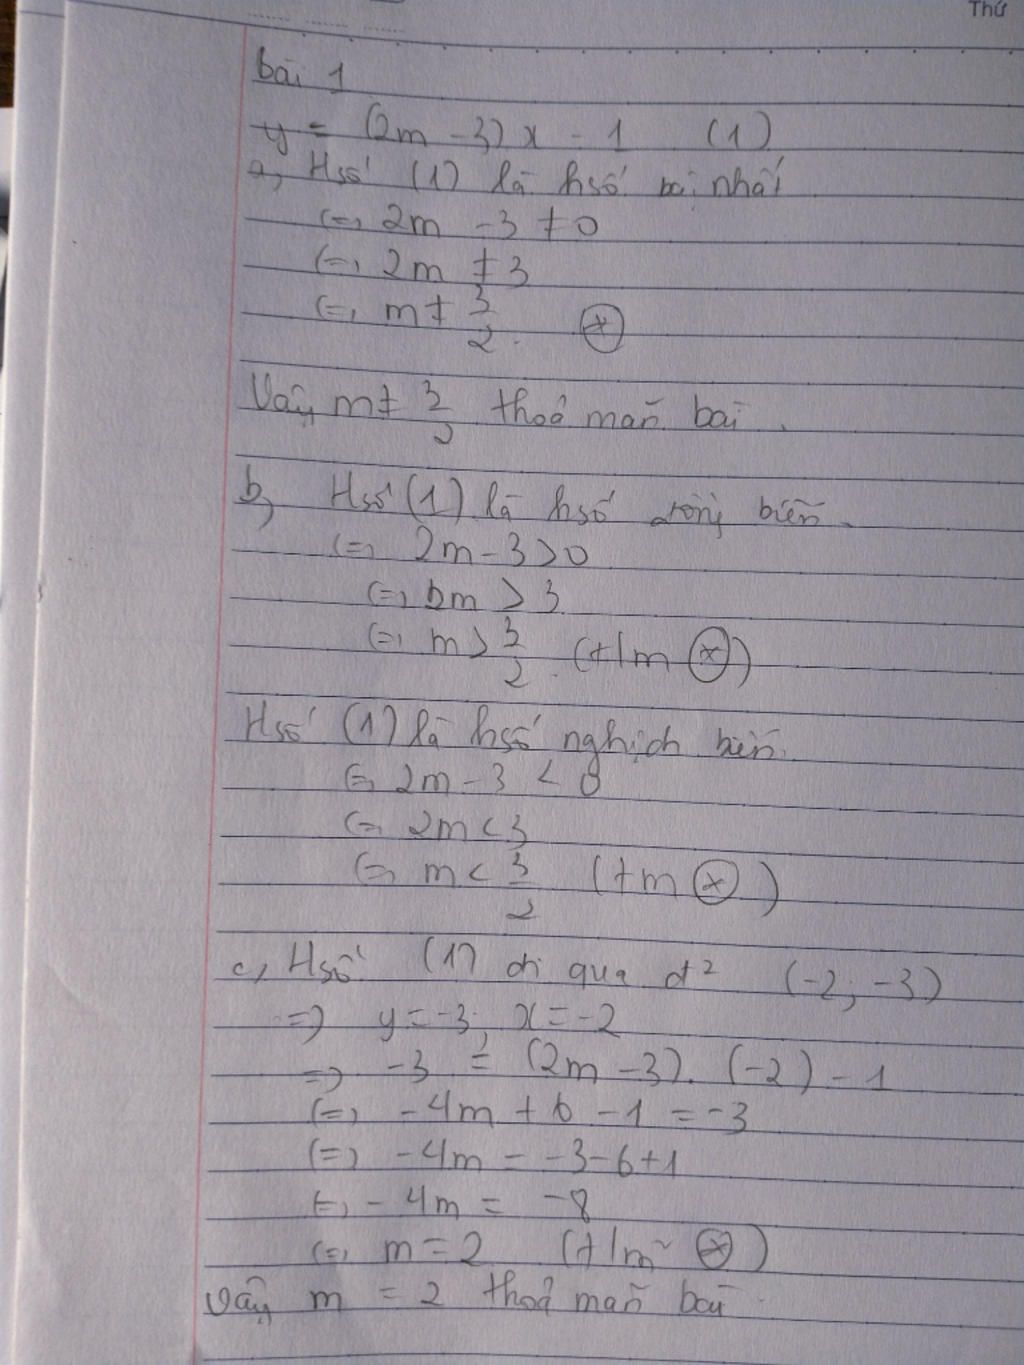 Thứ
bài 1
y = (2m - 3)x - 1 (1)
a, Hsố (1) là hsố bậc nhất
(=) 2m - 3 ≠ 0
(=) 2m ≠ 3
(=) m ≠ 3/2 (*)
Vậy m ≠ 3/2 thoả mãn bài.
b, Hsố (1) là hsố đồng biến.
(=) 2m - 3 > 0
(=) 2m > 3
(=) m > 3/2 (t/m (*))
Hsố (1) là hsố nghịch biến.
(=) 2m - 3 < 0
(=) 2m < 3
(=) m < 3/2 (t/m (*))
c, Hsố (1) đi qua đ² (-2; -3)
=> y = -3; x = -2
=> -3 = (2m - 3). (-2) - 1
(=) -4m + 6 - 1 = -3
(=) -4m = -3 - 6 + 1
(=) -4m = -8
(=) m = 2 (t/m (*))
Vậy m = 2 thoả mãn bài.